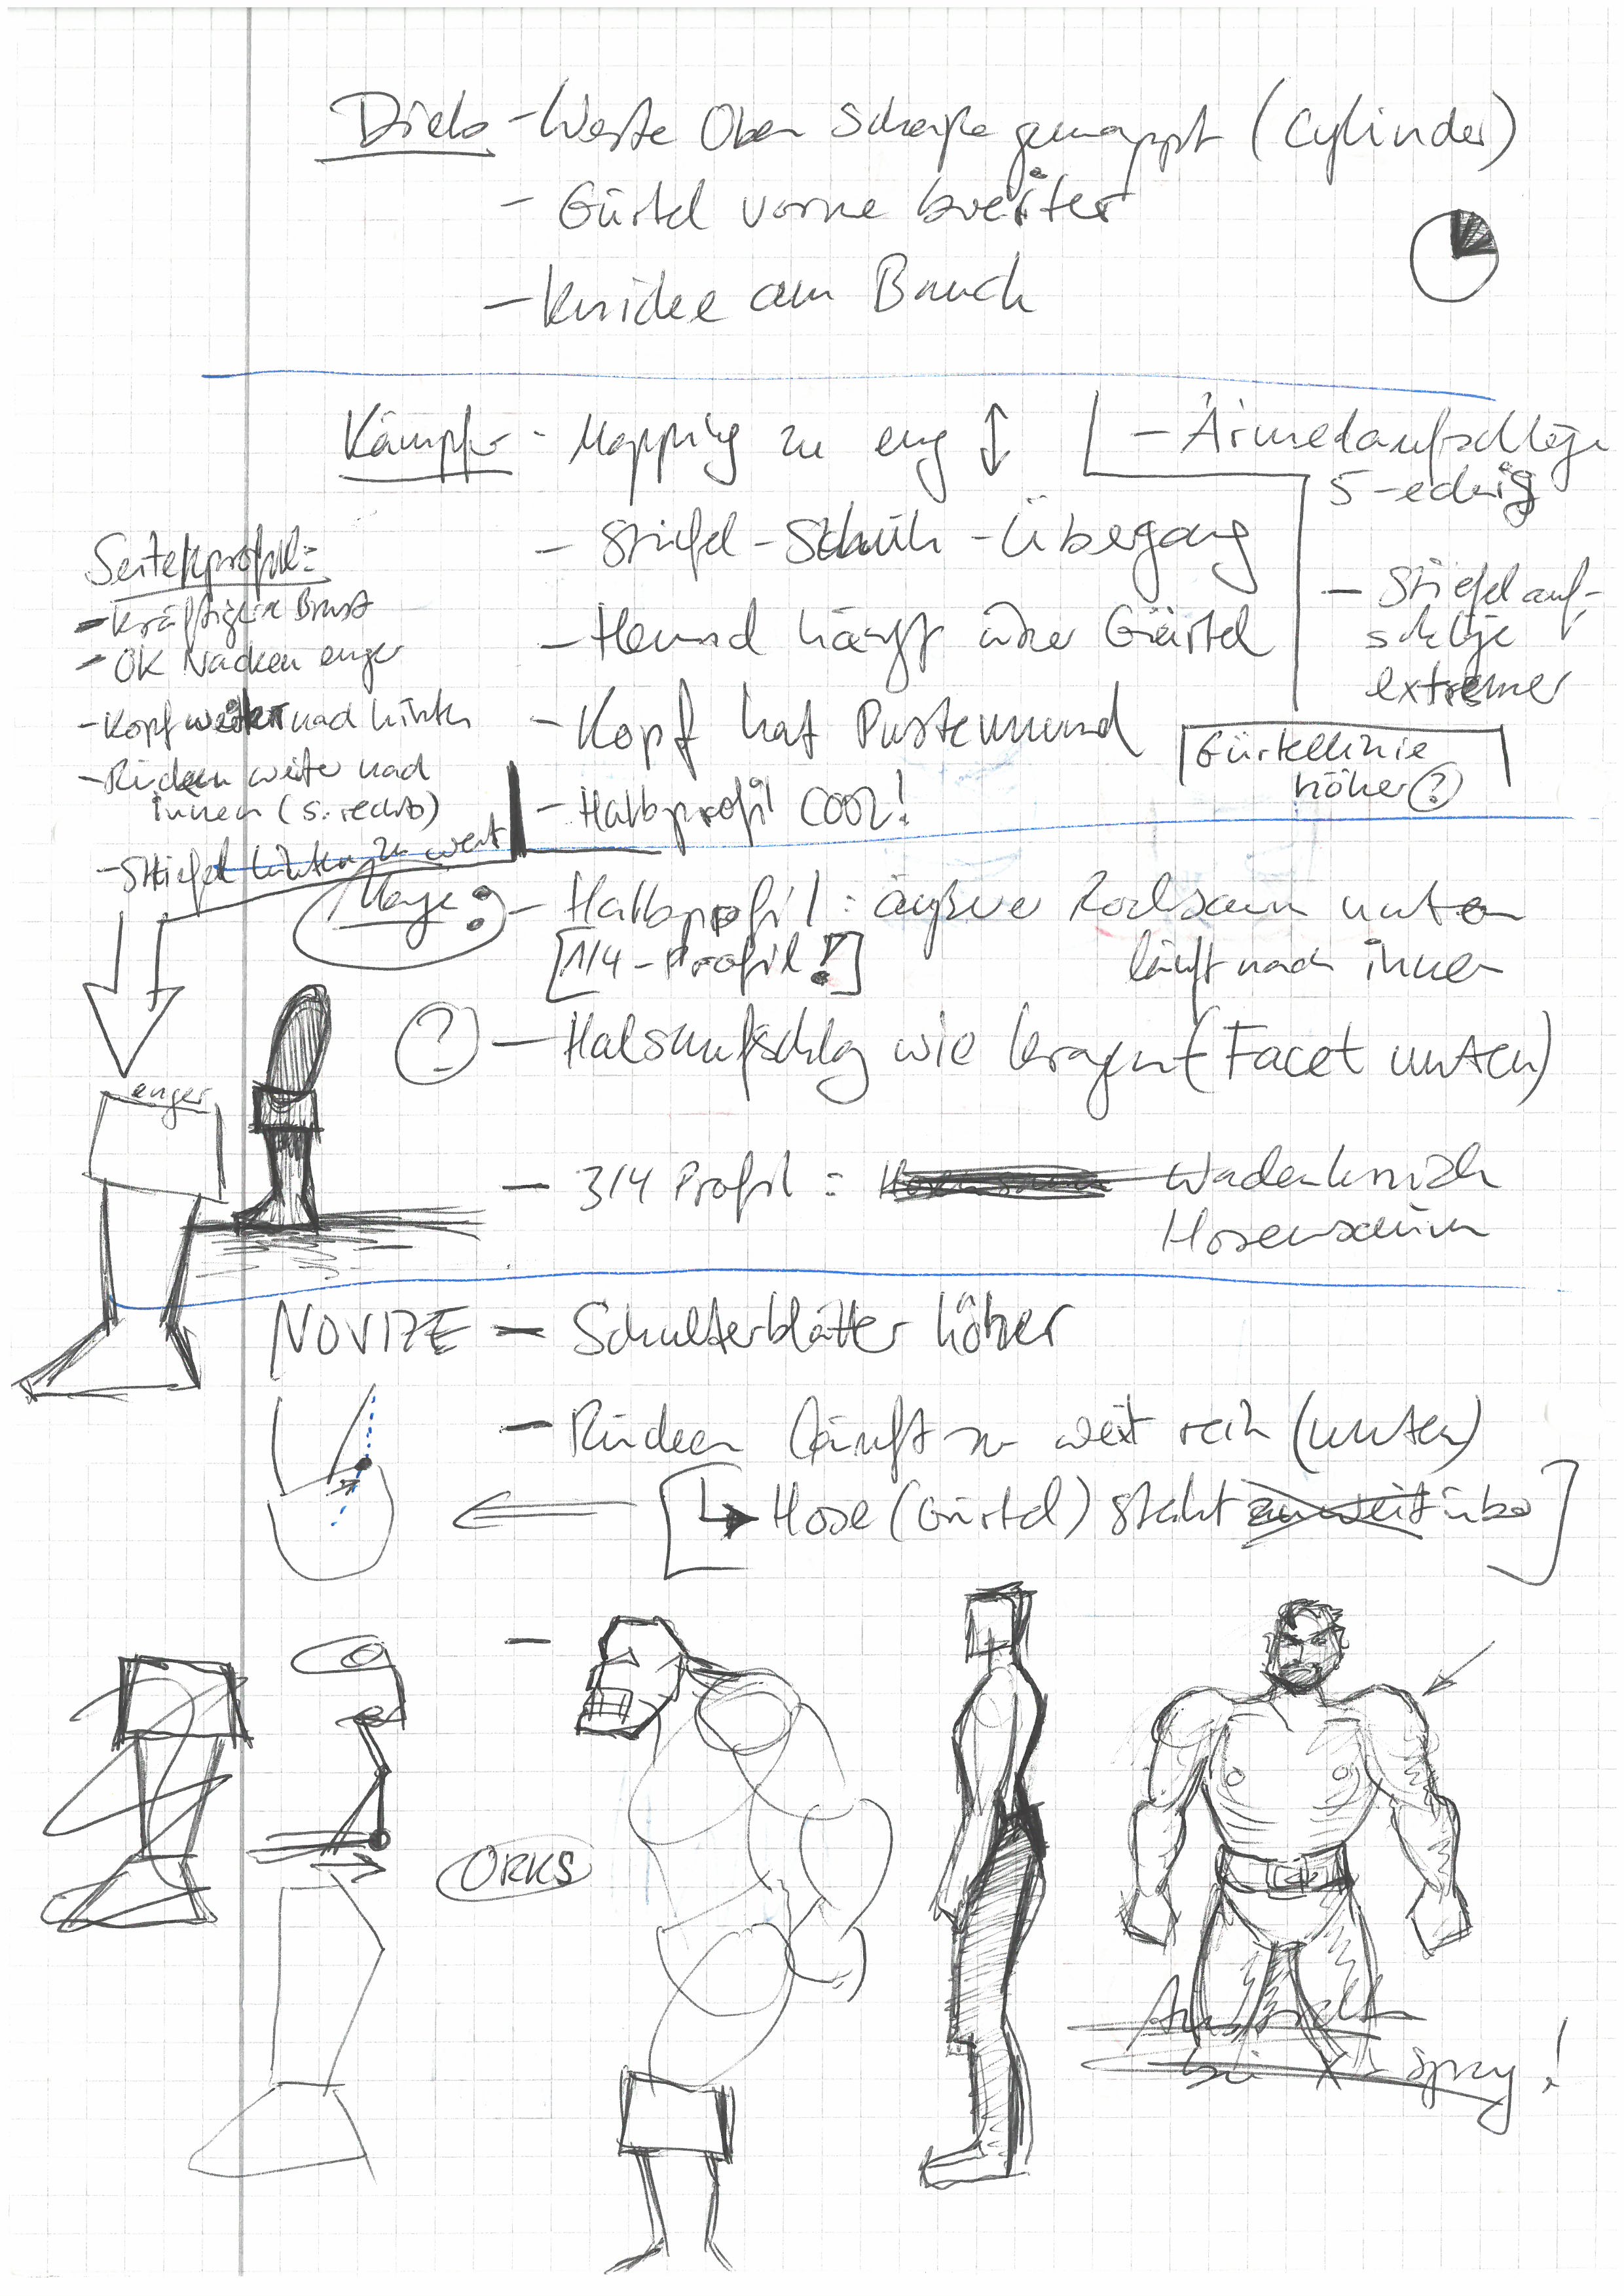 Dieb - Weste Oben Scheiße gemappt (Cylinder)
- Gürtel vorne breiter
- Knicke am Bauch
Kämpfer - Mapping zu eng
- Stiefel-Schuh-Übergang
- Hemd hängt über Gürtel
- Kopf hat Pustemund
- Halbprofil COOL!
- Ärmelaufschläge
5-eckig
- Stiefelauf-
schläge
extremer
Gürtellinie
höher ?
Seitenprofil:
- kräftigere Brust
- OK Nacken enger
- Kopf weiter nach hinten
- Rücken weiter nach
innen (s. rechts)
- Stiefel hinten zu weit
enger
Magier: - Halbprofil: äußerer Rocksaum unten
[1/4-Profil!] läuft nach innen
? - Halsaufschlag wie Kragen (Facet unten)
- 3/4 Profil: Wadenknick
Hosensaum
NOVIZE - Schulterblätter höher
- Rücken läuft zu weit rein (unten)
[Hose (Gürtel) steht zu weit über]
-
ORKS
bei X-Spray!